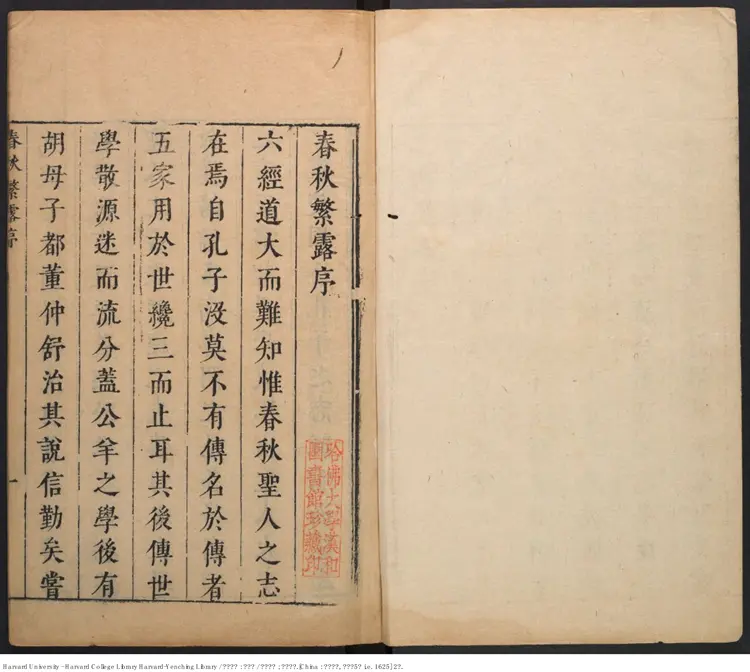 春秋繁露序
六經道大而難知惟春秋聖人之志
在焉自孔子沒莫不有傳名於傳者
五家用於世纔三而止耳其後傳世
學散源迷而流分蓋公羊之學後有
胡母子都董仲舒治其說信勤矣嘗
春秋繁露序
一
哈佛大學漢和
圖書館珍藏印
Harvard University - Harvard College Library Harvard-Yenching Library / ???? : ??? / ???? ; ????.[China : ????, ???5? ie. 1625] 2?.